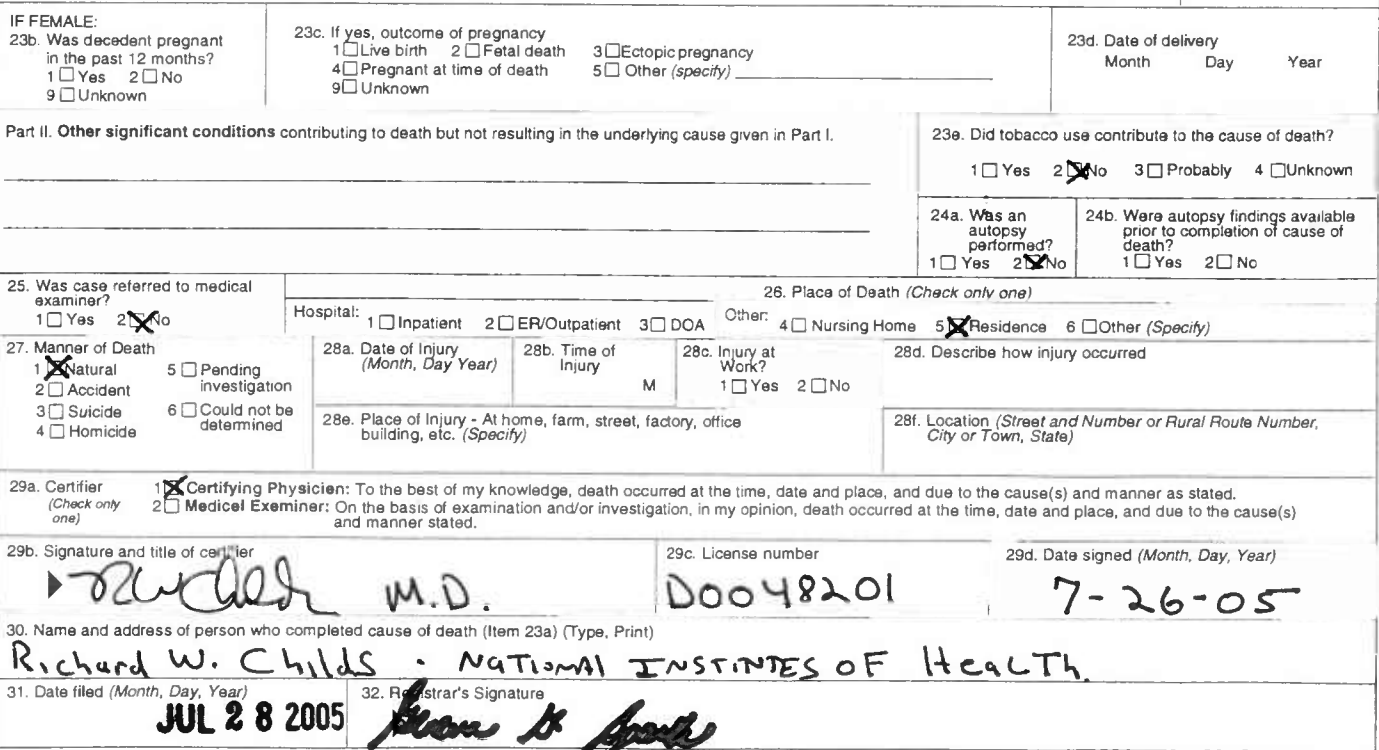 IF FEMALE:
23b. Was decedent pregnant
in the past 12 months?
1 ☐ Yes 2 ☐ No
9 ☐ Unknown
23c. If yes, outcome of pregnancy
1 ☐ Live birth 2 ☐ Fetal death 3 ☐ Ectopic pregnancy
4 ☐ Pregnant at time of death 5 ☐ Other (specify)
9 ☐ Unknown
23d. Date of delivery
Month Day Year
Part II. Other significant conditions contributing to death but not resulting in the underlying cause given in Part I.
23e. Did tobacco use contribute to the cause of death?
1 ☐ Yes 2 ☒ No 3 ☐ Probably 4 ☐ Unknown
24a. Was an
autopsy
performed?
1 ☐ Yes 2 ☒ No
24b. Were autopsy findings available
prior to completion of cause of
death?
1 ☐ Yes 2 ☐ No
25. Was case referred to medical
examiner?
1 ☐ Yes 2 ☒ No
26. Place of Death (Check only one)
Hospital: 1 ☐ Inpatient 2 ☐ ER/Outpatient 3 ☐ DOA Other: 4 ☐ Nursing Home 5 ☒ Residence 6 ☐ Other (Specify)
27. Manner of Death
1 ☒ Natural 5 ☐ Pending
investigation
2 ☐ Accident
3 ☐ Suicide 6 ☐ Could not be
determined
4 ☐ Homicide
28a. Date of Injury
(Month, Day Year)
28b. Time of
Injury
M
28c. Injury at
Work?
1 ☐ Yes 2 ☐ No
28d. Describe how injury occurred
28e. Place of Injury - At home, farm, street, factory, office
building, etc. (Specify)
28f. Location (Street and Number or Rural Route Number,
City or Town, State)
29a. Certifier
(Check only
one)
1 ☒ Certifying Physician: To the best of my knowledge, death occurred at the time, date and place, and due to the cause(s) and manner as stated.
2 ☐ Medical Examiner: On the basis of examination and/or investigation, in my opinion, death occurred at the time, date and place, and due to the cause(s)
and manner stated.
29b. Signature and title of certifier
RW Childs M.D.
29c. License number
D0048201
29d. Date signed (Month, Day, Year)
7-26-05
30. Name and address of person who completed cause of death (Item 23a) (Type, Print)
Richard W. Childs . NATIONAL INSTITUTES OF HeaLTh.
31. Date filed (Month, Day, Year)
JUL 28 2005
32. Registrar's Signature